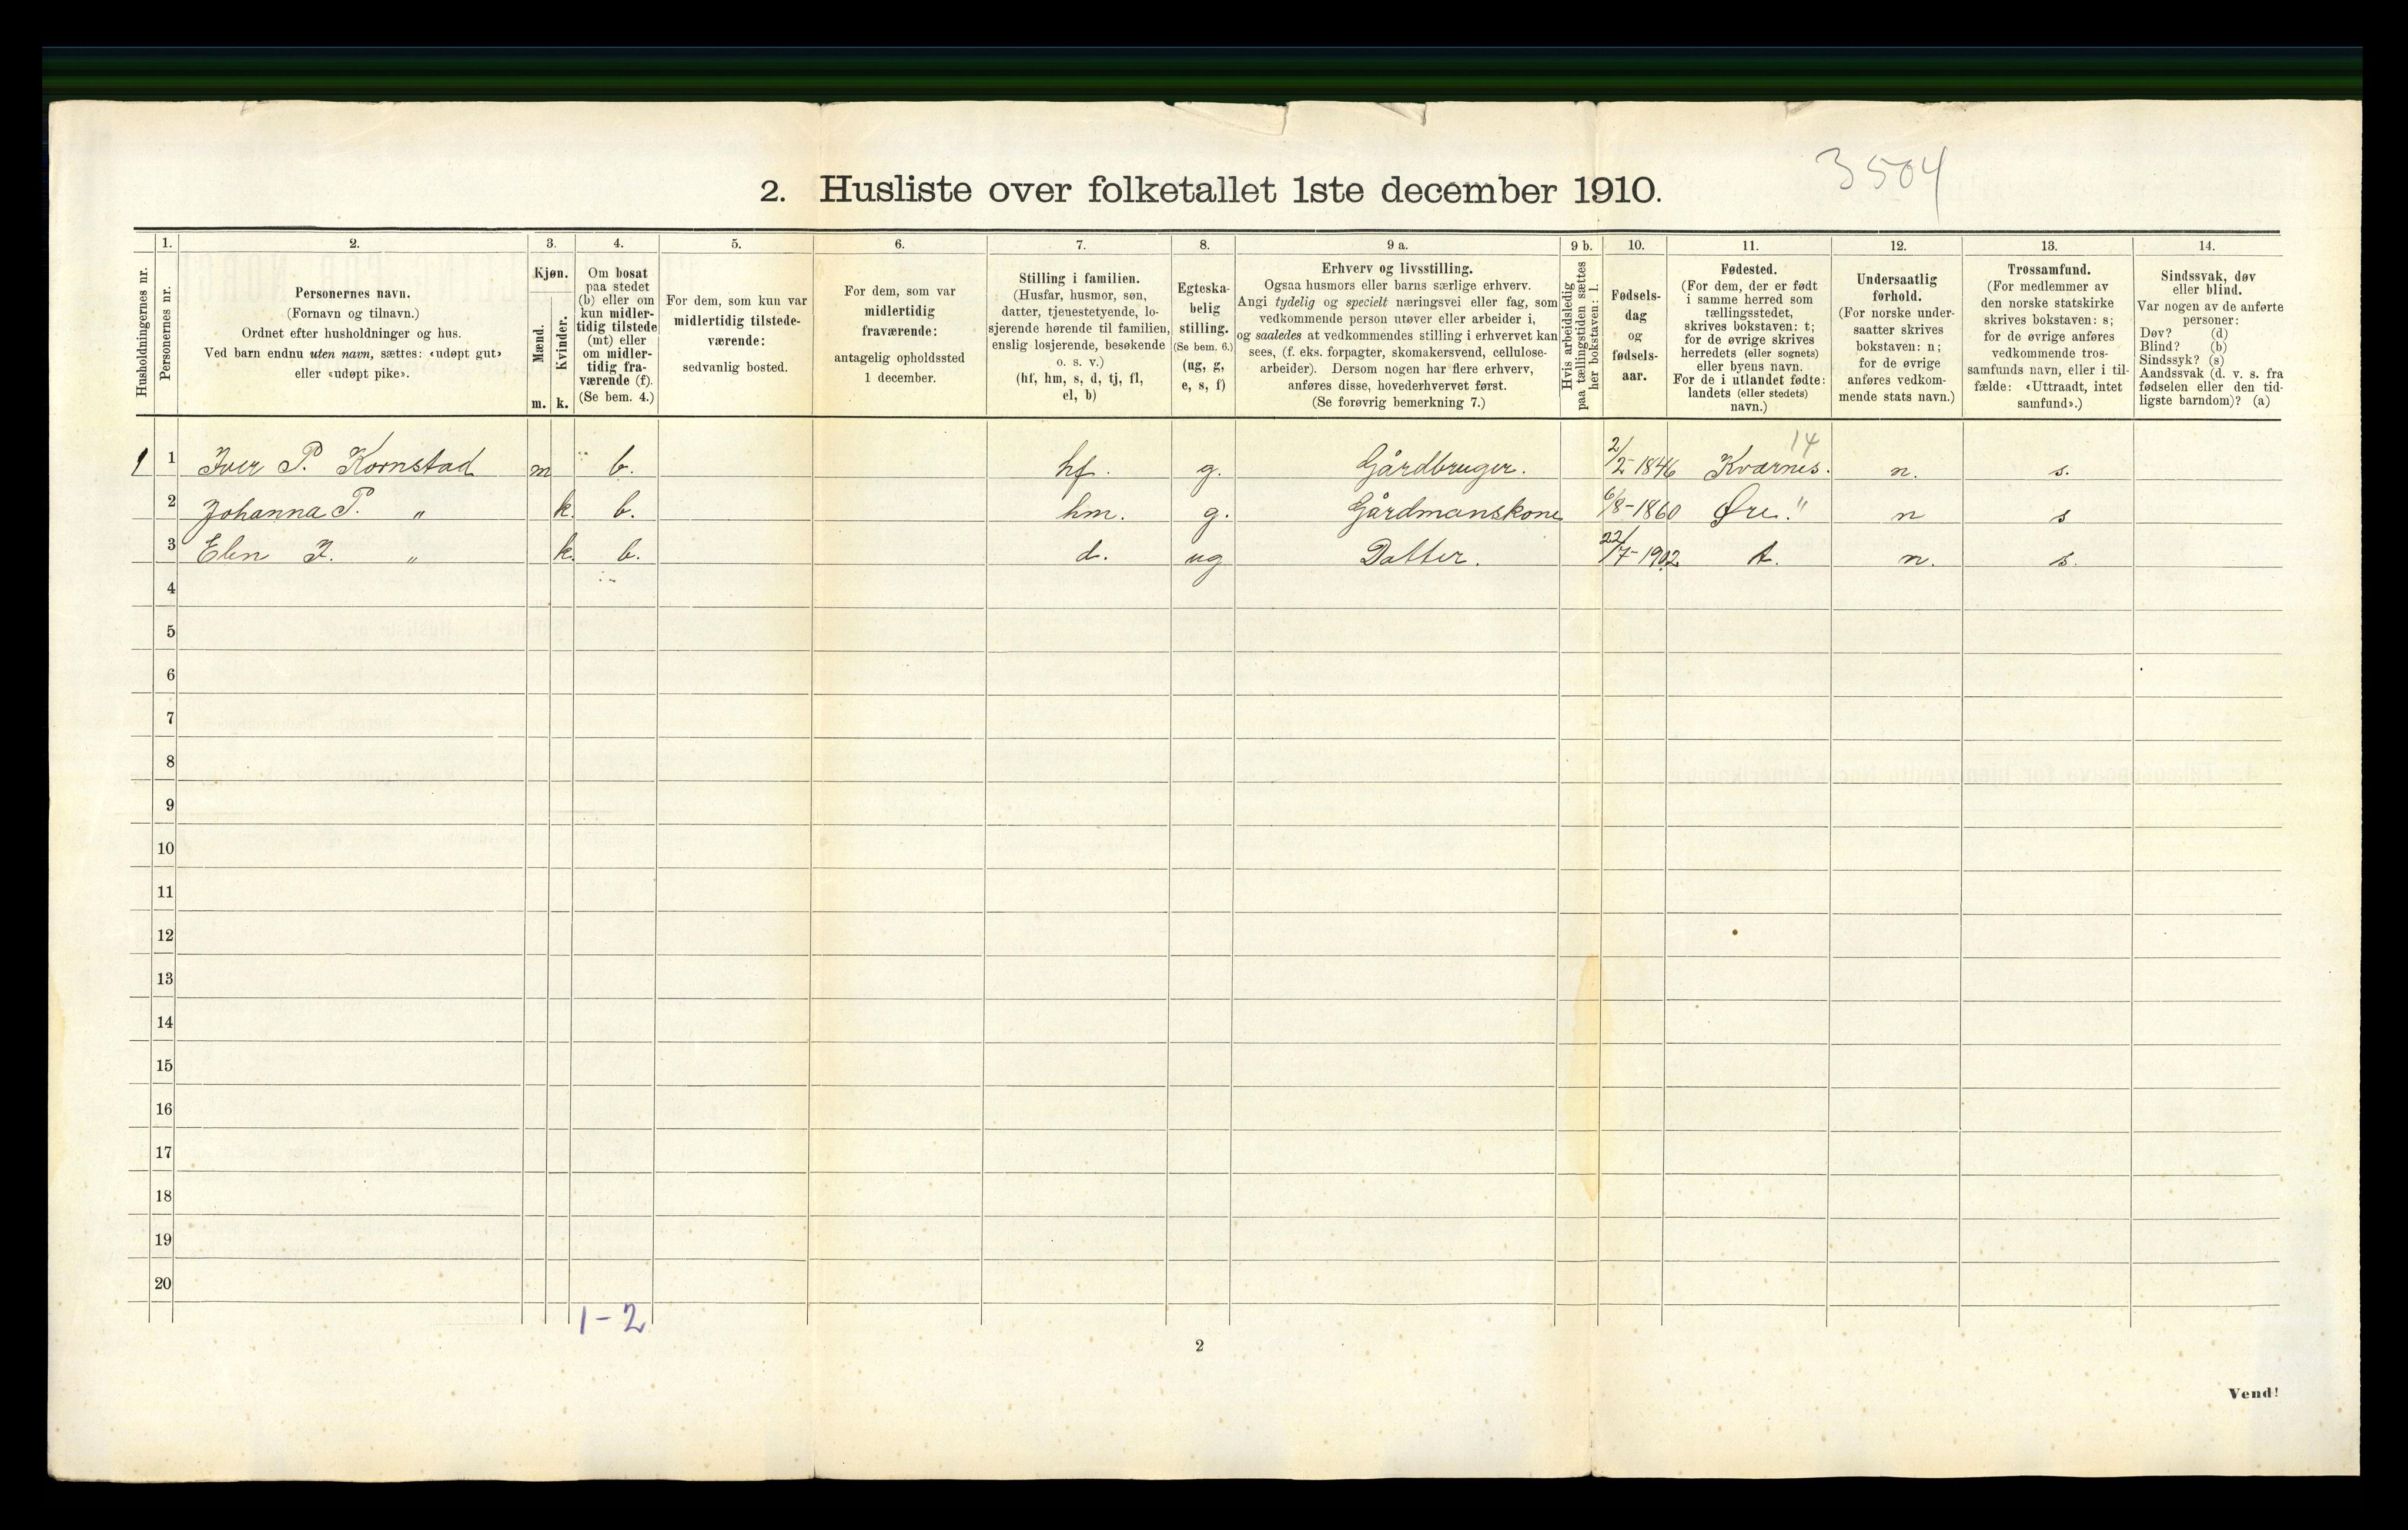 3504
2. Husliste over folketallet 1ste december 1910.
Husholdningernes nr.
1.
Personernes nr.
2.
Personernes navn.
(Fornavn og tilnavn.)
Ordnet efter husholdninger og hus.
Ved barn endnu uten navn, sættes: «udøpt gut»
eller «udøpt pike».
3.
Kjøn.
Mænd.
Kvinder.
m. k.
4.
Om bosat
paa stedet
(b) eller om
kun midler-
tidig tilstede
(mt) eller
om midler-
tidig fra-
værende (f).
(Se bem. 4.)
5.
For dem, som kun var
midlertidig tilstede-
værende:
sedvanlig bosted.
6.
For dem, som var
midlertidig
fraværende:
antagelig opholdssted
1 december.
7.
Stilling i familien.
(Husfar, husmor, søn,
datter, tjenestetyende, lo-
sjerende hørende til familien,
enslig losjerende, besøkende
o. s. v.)
(hf, hm, s, d, tj, fl,
el, b)
8.
Egteska-
belig
stilling.
(Se bem. 6.)
(ug, g,
e, s, f)
9 a.
Erhverv og livsstilling.
Ogsaa husmors eller barns særlige erhverv.
Angi tydelig og specielt næringsvei eller fag, som
vedkommende person utøver eller arbeider i,
og saaledes at vedkommendes stilling i erhvervet kan
sees, (f. eks. forpagter, skomakersvend, cellulose-
arbeider). Dersom nogen har flere erhverv,
anføres disse, hovederhvervet først.
(Se forøvrig bemerkning 7.)
9 b.
Hvis arbeidsledig
paa tællingstiden sættes
her bokstaven: l.
10.
Fødsels-
dag
og
fødsels-
aar.
11.
Fødested.
(For dem, der er født
i samme herred som
tællingsstedet,
skrives bokstaven: t;
for de øvrige skrives
herredets (eller sognets)
eller byens navn.
For de i utlandet fødte:
landets (eller stedets)
navn.)
12.
Undersaatlig
forhold.
(For norske under-
saatter skrives
bokstaven: n;
for de øvrige
anføres vedkom-
mende stats navn.)
13.
Trossamfund.
(For medlemmer av
den norske statskirke
skrives bokstaven: s;
for de øvrige anføres
vedkommende tros-
samfunds navn, eller i til-
fælde: «Uttraadt, intet
samfund».)
14.
Sindssvak, døv
eller blind.
Var nogen av de anførte
personer:
Døv? (d)
Blind? (b)
Sindssyk? (s)
Aandssvak (d. v. s. fra
fødselen eller den tid-
ligste barndom)? (a)
14
1 1 Iver P. Kornstad m b. hf. g. Gårdbruger. 2/2-1846 Kværnes. n. s.
2 Johanna P. " k. b. hm. g. Gårdmanskone 6/8-1860 Øre. " n s
3 Elen I. " k. b. d. ug Datter. 22/7-1902 t. n. s.
4
5
6
7
8
9
10
11
12
13
14
15
16
17
18
19
20
1-2
2
Vend!